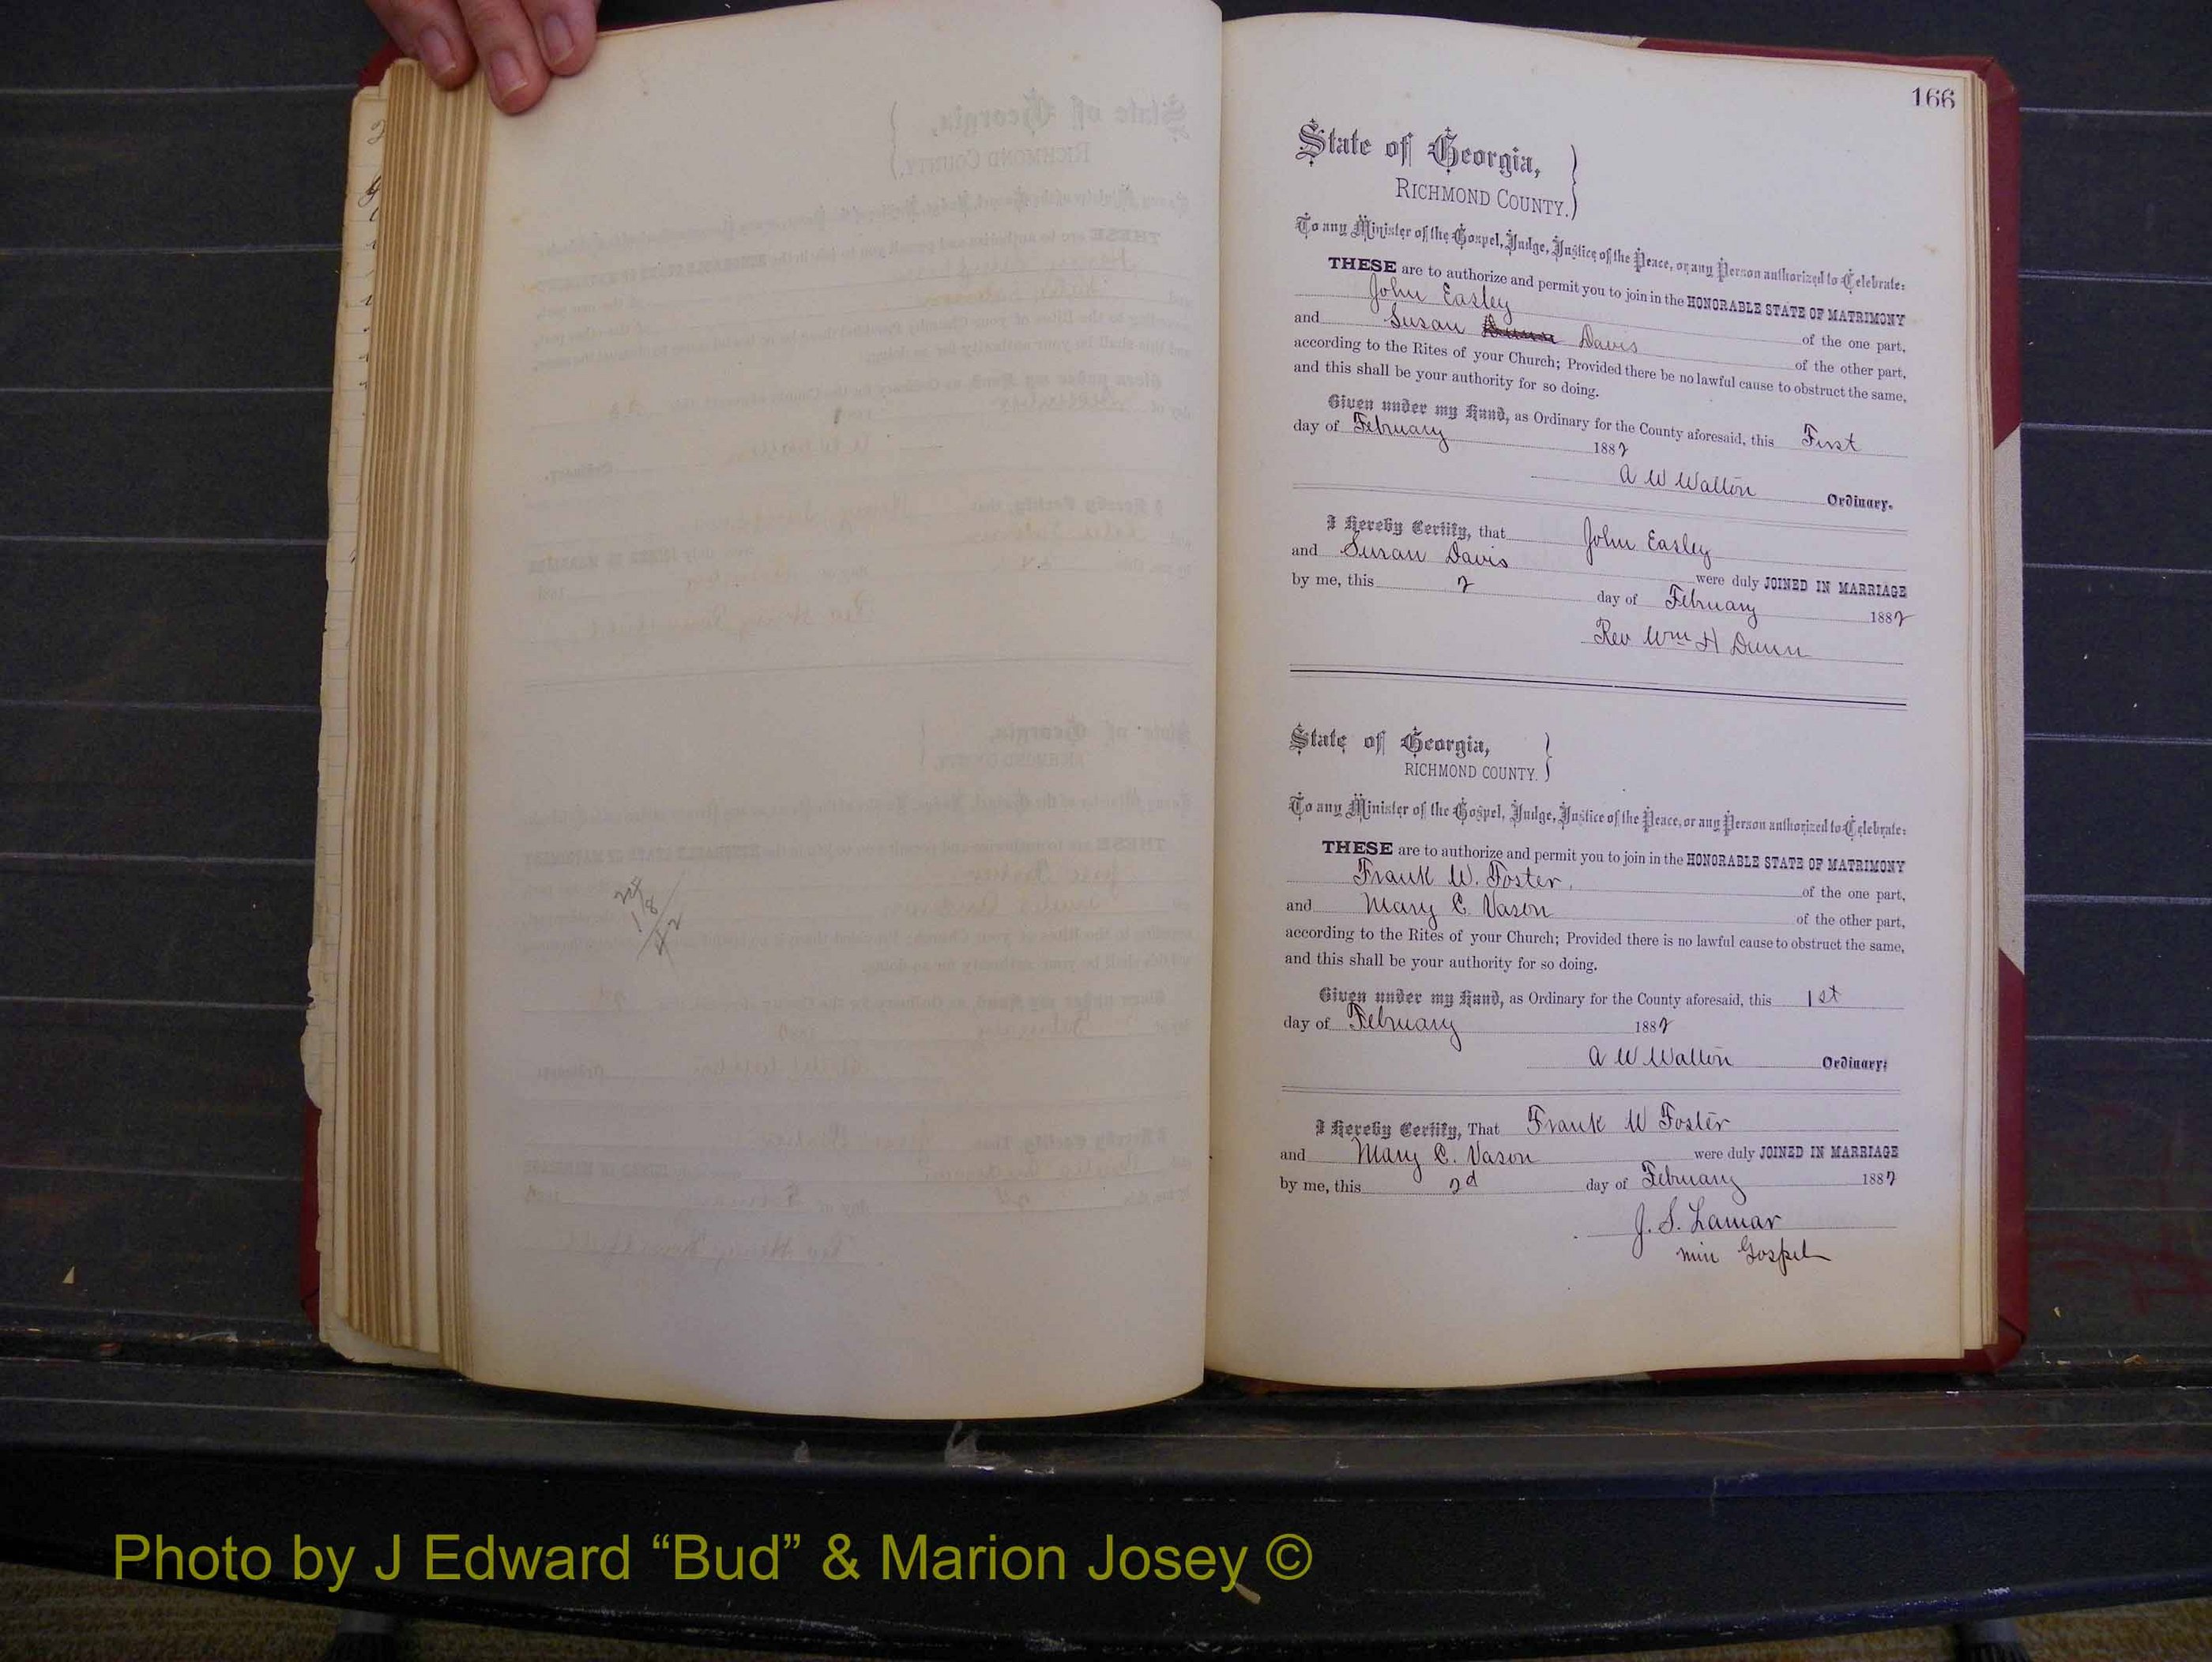 166
State of Georgia,
RICHMOND COUNTY.
To any Minister of the Gospel, Judge, Justice of the Peace, or any Person authorized to Celebrate:
THESE are to authorize and permit you to join in the HONORABLE STATE OF MATRIMONY
John Easley of the one part,
and Susan Davis of the other part,
according to the Rites of your Church; Provided there be no lawful cause to obstruct the same,
and this shall be your authority for so doing.
Given under my Hand, as Ordinary for the County aforesaid, this First
day of February 1882
A W Walton Ordinary.
I Hereby Certify, that John Easley
and Susan Davis were duly JOINED IN MARRIAGE
by me, this 2 day of February 1882
Rev Wm H Dunn
State of Georgia,
RICHMOND COUNTY.
To any Minister of the Gospel, Judge, Justice of the Peace, or any Person authorized to Celebrate:
THESE are to authorize and permit you to join in the HONORABLE STATE OF MATRIMONY
Frank W. Foster, of the one part,
and Mary C. Vason of the other part,
according to the Rites of your Church; Provided there is no lawful cause to obstruct the same,
and this shall be your authority for so doing.
Given under my Hand, as Ordinary for the County aforesaid, this 1st
day of February 1882
A W Walton Ordinary:
I Hereby Certify, That Frank W Foster
and Mary C. Vason were duly JOINED IN MARRIAGE
by me, this 2d day of February 1882
J. S. Lamar
min Gospel
Photo by J Edward “Bud” & Marion Josey ©